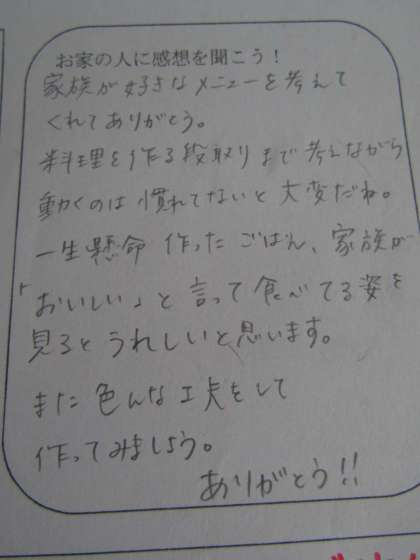 お家の人に感想を聞こう！
家族が好きなメニューを考えて
くれてありがとう。
料理を作る段取りまで考えながら
動くのは慣れてないと大変だね。
一生懸命 作ったごはん、家族が
「おいしい」と言って食べてる姿を
見るとうれしいと思います。
また色んな工夫をして
作ってみましょう。
ありがとう!!